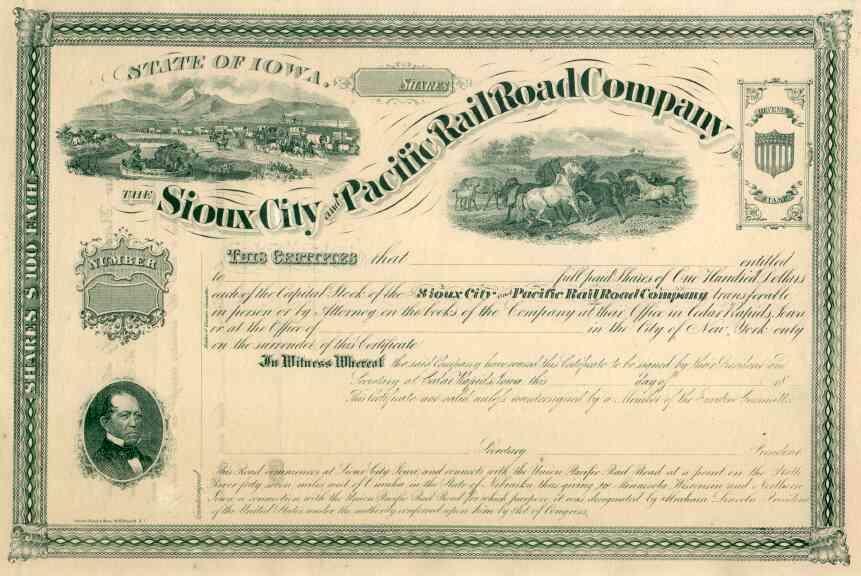 STATE OF IOWA.
SHARES
THE Sioux City and Pacific Rail Road Company
REVENUE
STAMP
SHARES $100 EACH
NUMBER
This Certifies that entitled
to full paid Shares of One Hundred Dollars
each of the Capital Stock of the Sioux City and Pacific Rail Road Company transferable
in person or by Attorney on the books of the Company at their Office in Cedar Rapids, Iowa
or at the Office of in the City of New York only
on the surrender of this Certificate
In Witness Whereof the said Company have caused this Certificate to be signed by their President and
Secretary at Cedar Rapids, Iowa this day of 18
This Certificate not valid unless countersigned by a Member of the Executive Committee
Secretary President
This Road commences at Sioux City Iowa and connects with the Union Pacific Rail Road at a point on the Platte
River forty seven miles west of Omaha in the State of Nebraska thus giving to Minnesota Wisconsin and Northern
Iowa a connection with the Union Pacific Rail Road for which purpose it was designated by Abraham Lincoln President
of the United States under the authority conferred upon him by Act of Congress.